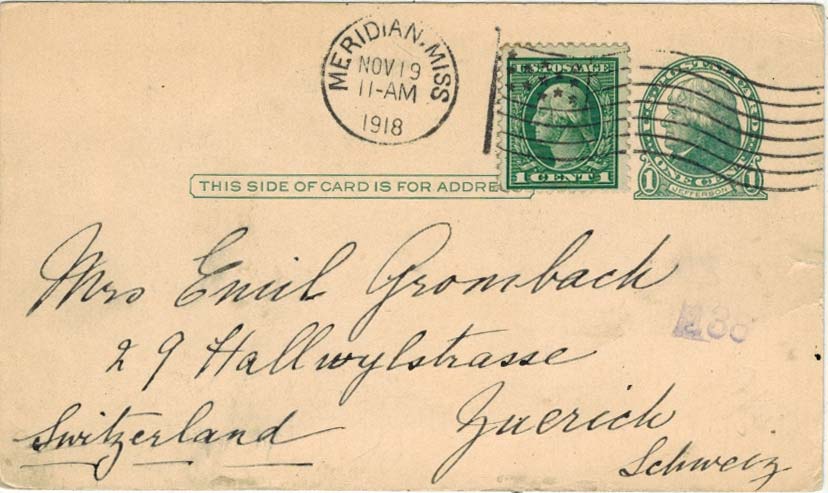 MERIDIAN, MISS
NOV 19
11-AM
1918
U.S. POSTAGE
1 CENT 1
U.S. POSTAL CARD
1 ONE CENT 1
JEFFERSON
THIS SIDE OF CARD IS FOR ADDRE
Mrs Emil Grombach
29 Hallwylstrasse
Switzerland Zuerich
Schweiz